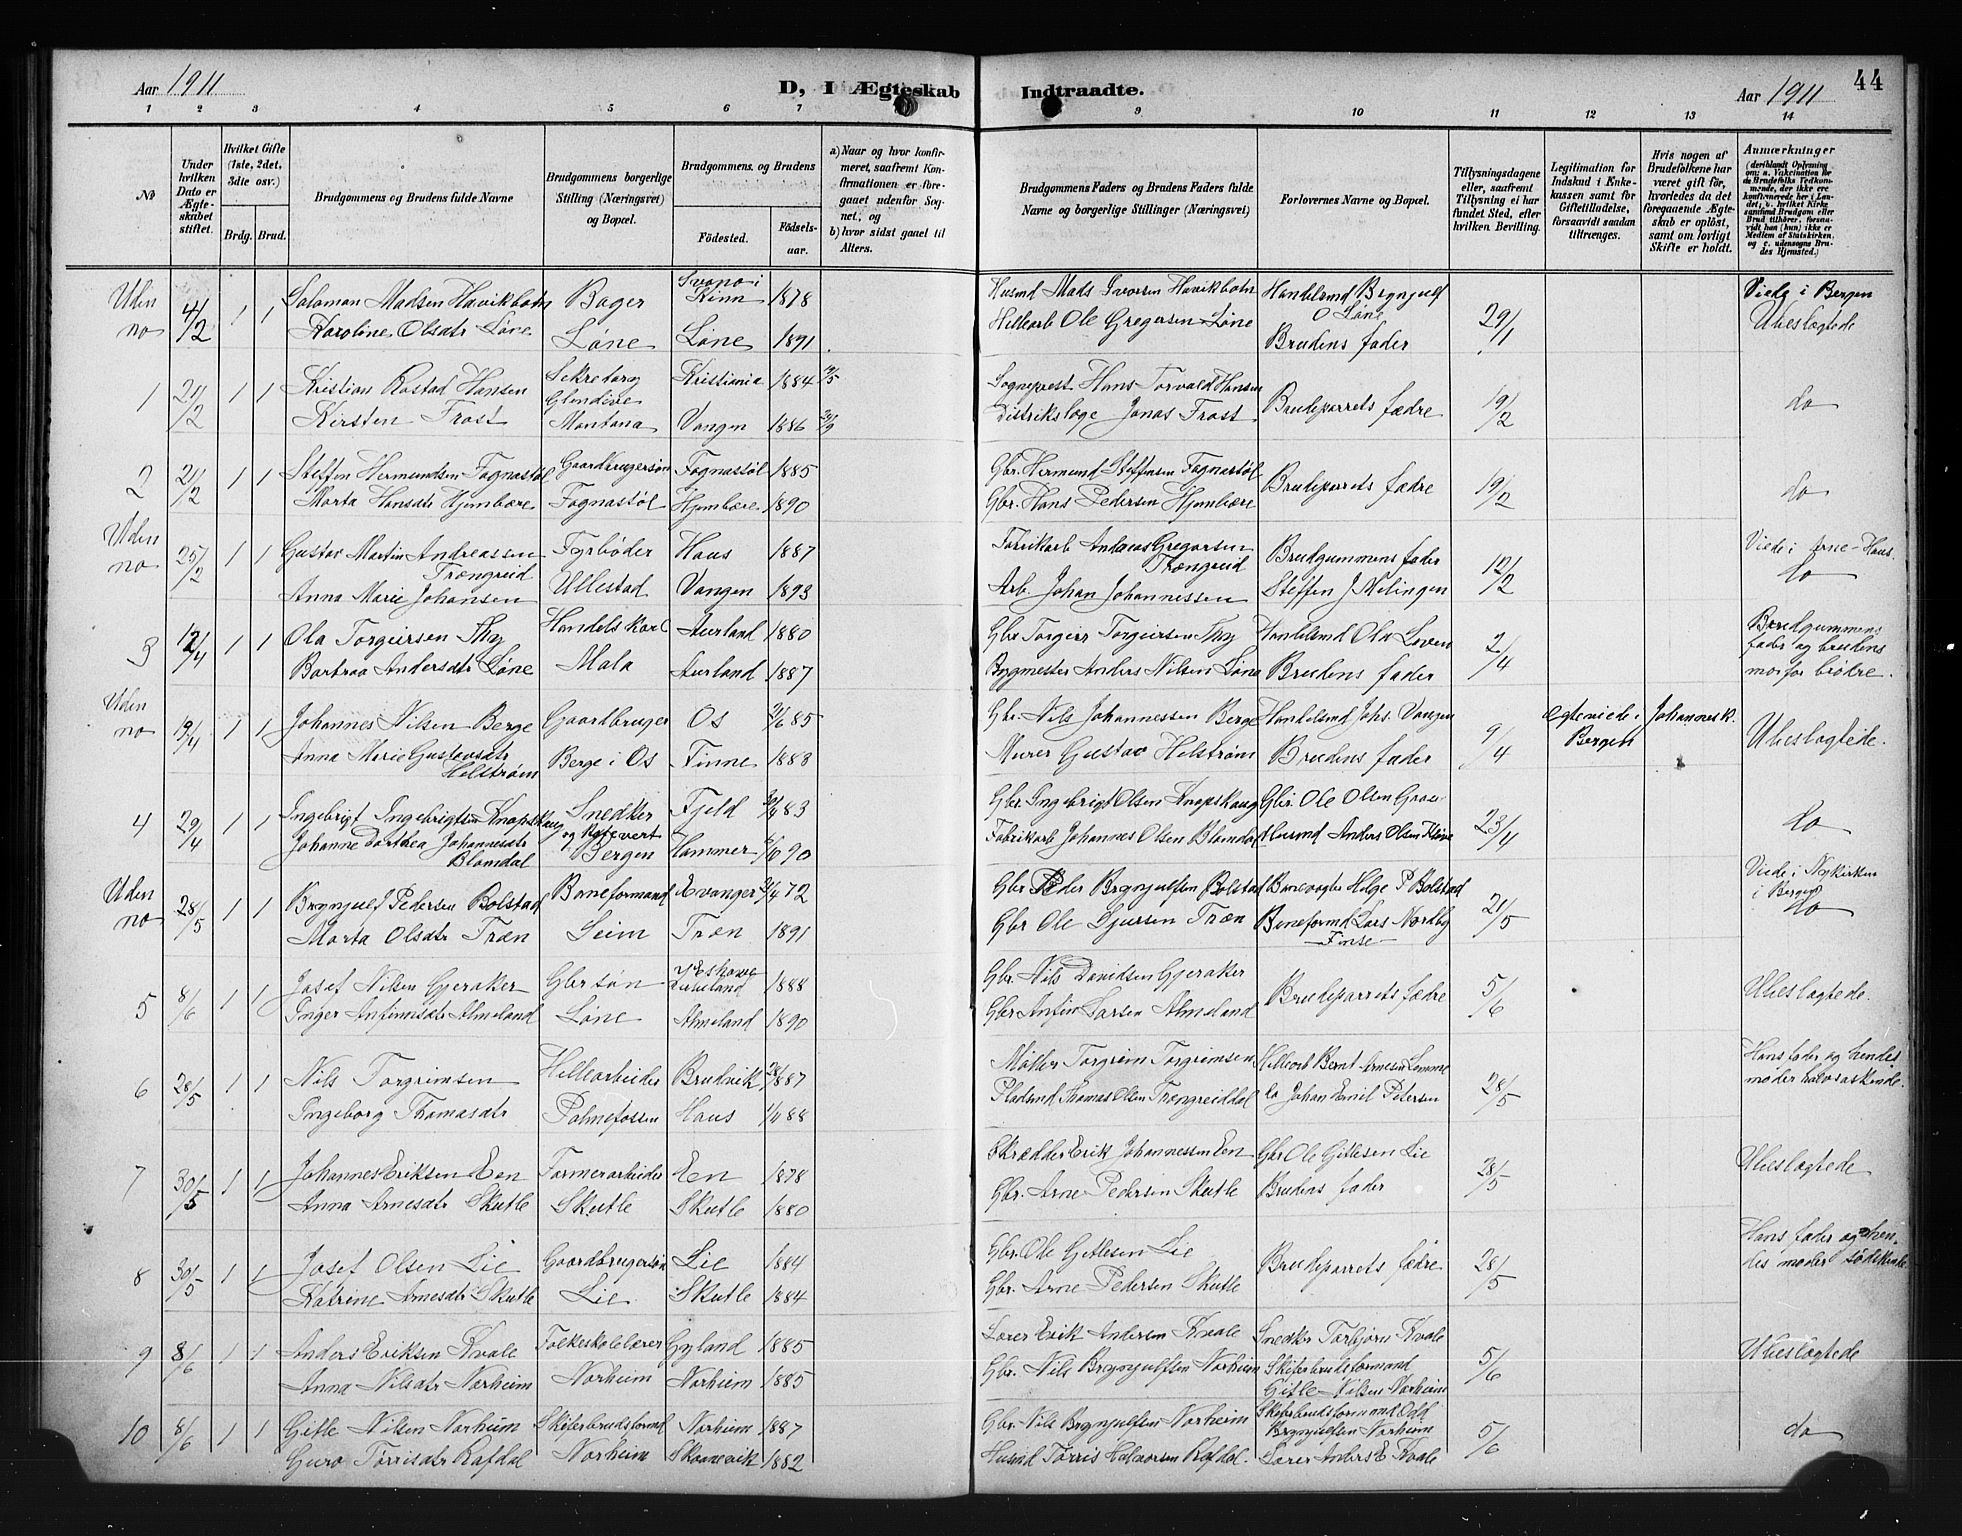 Aar 1911
D, I Ægteskab Indtraadte.
Aar 1911
44
1 2 3 4 5 6 7 9 10 11 12 13 14
No
Under hvilken Dato er Ægteskabet stiftet.
Hvilket Gifte (1ste, 2det, 3die osv.)
Brdg. Brud.
Brudgommens og Brudens fulde Navne
Brudgommens borgerlige Stilling (Næringsvei) og Bopæl.
Brudgommens og Brudens
Fødested.
Fødselsaar.
a) Naar og hvor konfirmeret, saafremt Konfirmationen er foregaaet udenfor Sognet, og
b) hvor sidst gaaet til Alters.
Brudgommens Faders og Brudens Faders fulde Navne og borgerlige Stillinger (Næringsvei)
Forlovernes Navne og Bopæl.
Tillysningsdagene eller, saafremt Tillysning ei har fundet Sted, efter hvilken Bevilling.
Legitimation for Indskud i Enkekassen samt for Giftetilladelse, forsaavidt saadan tiltrænges.
Hvis nogen af Brudefolkene har været gift før, hvorledes da det foregaaende Ægteskab er opløst, samt om lovligt Skifte er holdt.
Anmærkninger
Uden no 4/2 1 1 Salomon Madsen Havikbotn Bager Svanø i Kinn 1878 Husmd Mads Ivarsen Havikbotn Handelsmd Brynjulf O Løne 29/1 Viede i Bergen
Karoline Olsdtr Løne Løne Løne 1891 Hillearb Ole Gregersen Løne Brudens fader Ubeslægtede
1 21/2 1 1 Kristian Rostad Hansen Sekretær Kristiania 1884 Sogneprest Hans Torvald Hansen Brudeparrets fædre 19/2 do
Kirsten Frost Glendive Montana Vangen 1886 Distriktslæge Jonas Frost
2 21/2 1 1 Steffen Hermundsen Fagnastøl Gaardbrugersøn Fagnastøl 1885 Gbr. Hermund Steffensen Fagnastøl Brudeparrets fædre 19/2 do
Marta Hansdtr Hjembære Fagnastøl Hjembære 1890 Gbr. Hans Pedersen Hjembære
Uden no 25/2 1 1 Gustav Martin Andreassen Trængreid Fyrbøder Haus 1887 Fabrikarb Andreas Gregorsen Trængreid Brudgummens fader 12/2 Viede i Arne-Haus.
Anna Marie Johansen Ullestad Vangen 1893 Arb. Johan Johannessen Steffen J Melingen do
3 12/4 1 1 Ola Torgeirsen Thy Handelskarl Aurland 1880 Gbr Torgeir Torgeirsen Thy Handelsmd Ola Loven 2/4 Brudgummens fader og brudens morfar brødre.
Barbraa Andersdtr Løne Mala Aurland 1887 Bygmester Anders Nilsen Løne Brudens fader
Uden no 19/4 1 1 Johannes Nilsen Berge Gaardbruger Os 85 Gbr. Nils Johannessen Berge Handelsmd Johs. Vangen 9/4 Egteviede i Bergen Johannesk. Ubeslægtede.
Anna Marie Gustavsdtr Helstrøm Berge i Os Finne 1883 Murer Gustav Helstrøm Brudens fader
4 29/4 1 1 Ingebrigt Ingebrigtsen Knapskaug Snedker Fjeld 83 Gbr. Ingebrigt Olsen Knapskaug Gbr. Ole Olsen 23/4 do
Johanne Dorthea Johannesdtr Blomdal Bergen Hammer 90 Fabrikarb Johannes Olsen Blomdal Husmd Anders Olsen
Uden no 28/5 1 1 Brynjulf Pedersen Bolstad Baneformand Evanger 72 Gbr Peder Brynjulfsen Bolstad Banevogter Helge P Bolstad 21/5 Viede i Nykirken i Bergen
Marta Olsdtr Træn Seim Træn 1891 Gbr Ole Sjursen Træn Baneformd Lars Nordby Finse do
5 8/6 1 1 Josef Nilsen Gjeraker Gbr søn 1888 Gbr. Nils Davidsen Gjeraker Brudeparrets fædre 5/6 Ubeslægtede.
Inger Anfinnsdtr Almeland Løne Almeland 1890 Gbr Anfin Larsen Almeland
6 28/5 1 1 Nils Torgrimsen Hillearbeider Brudvik 87 Møller Torgrim Torgrimsen Hillearb Bernt Arnesen 28/5 Hans fader og hendes moder halvsøskende.
Ingeborg Thomasdtr Palmefossen Haus 88 Pladsmd Thomas Olsen Trængreiddal do Johan Emil Petersen
7 30/5 1 1 Johannes Eriksen Een Farmerarbeider Een 1878 Skrædder Erik Johannessen Een Gbr Ole Gitlesen Lie 28/5 Ubeslægtede
Anna Arnesdtr Skutle Skutle Skutle 1880 Gbr. Arne Pedersen Skutle Brudens fader
8 30/5 1 1 Josef Olsen Lie Gaardbrugersøn Lie 1884 Gbr. Ole Gitlesen Lie Brudeparrets fædre 28/5 Hans fader og hendes moder sødskende
Katrine Arnesdtr Skutle Lie Skutle 1884 Gbr. Arne Pedersen Skutle
9 8/6 1 1 Anders Eriksen Kvale Folkeskolelærer Gyland 1885 Lærer Erik Andersen Kvale Snedker Torbjørn Kvale 5/6 Ubeslægtede
Anna Nilsdtr Nørheim Nørheim Nørheim 1885 Gbr. Nils Brynjulfsen Nørheim Skiferbrudsformand Gitle Nilsen Nørheim
10 8/6 1 1 Gitle Nilsen Nørheim Skiferbrudsformd Nørheim 1887 Gbr. Nils Brynjulfsen Nørheim Skiferbrudsformand Odd Brynjulfsen Nørheim 5/6 do
Guro Tørrisdtr Rafdal Nørheim Skaanevik 1882 Husmd Tørris Halvorsen Rafdal. Lærer Anders E Kvale